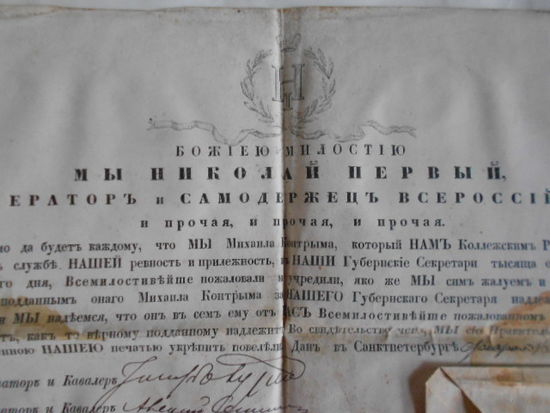 БОЖІЕЮ МИЛОСТІЮ
МЫ НИКОЛАЙ ПЕРВЫЙ,
ЕРАТОРЪ и САМОДЕРЖЕЦЪ ВСЕРОССІЙ
и прочая, и прочая, и прочая.
но да будетъ каждому, что МЫ Михаила Контрыма, который НАМЪ Коллежскимъ Р
ъ службѣ НАШЕЙ ревность и прилежность, въ НАШИ Губернскіе Секретари тысяча
го дня, Всемилостивѣйше пожаловали и учредили, яко же МЫ симъ жалуемъ и
подданнымъ онаго Михаила Контрыма за НАШЕГО Губернскаго Секретаря надлеж
и МЫ надѣемся, что онъ въ семъ ему отъ НАСЪ Всемилостивѣйше пожалованномъ
тъ, какъ то вѣрному подданному надлежитъ. Во свидѣтельство чего, МЫ сіе
нною НАШЕЮ печатью укрѣпить повелѣли. Данъ въ Санктпетербургѣ
аторъ и Кавалеръ
аторъ и Кавалеръ